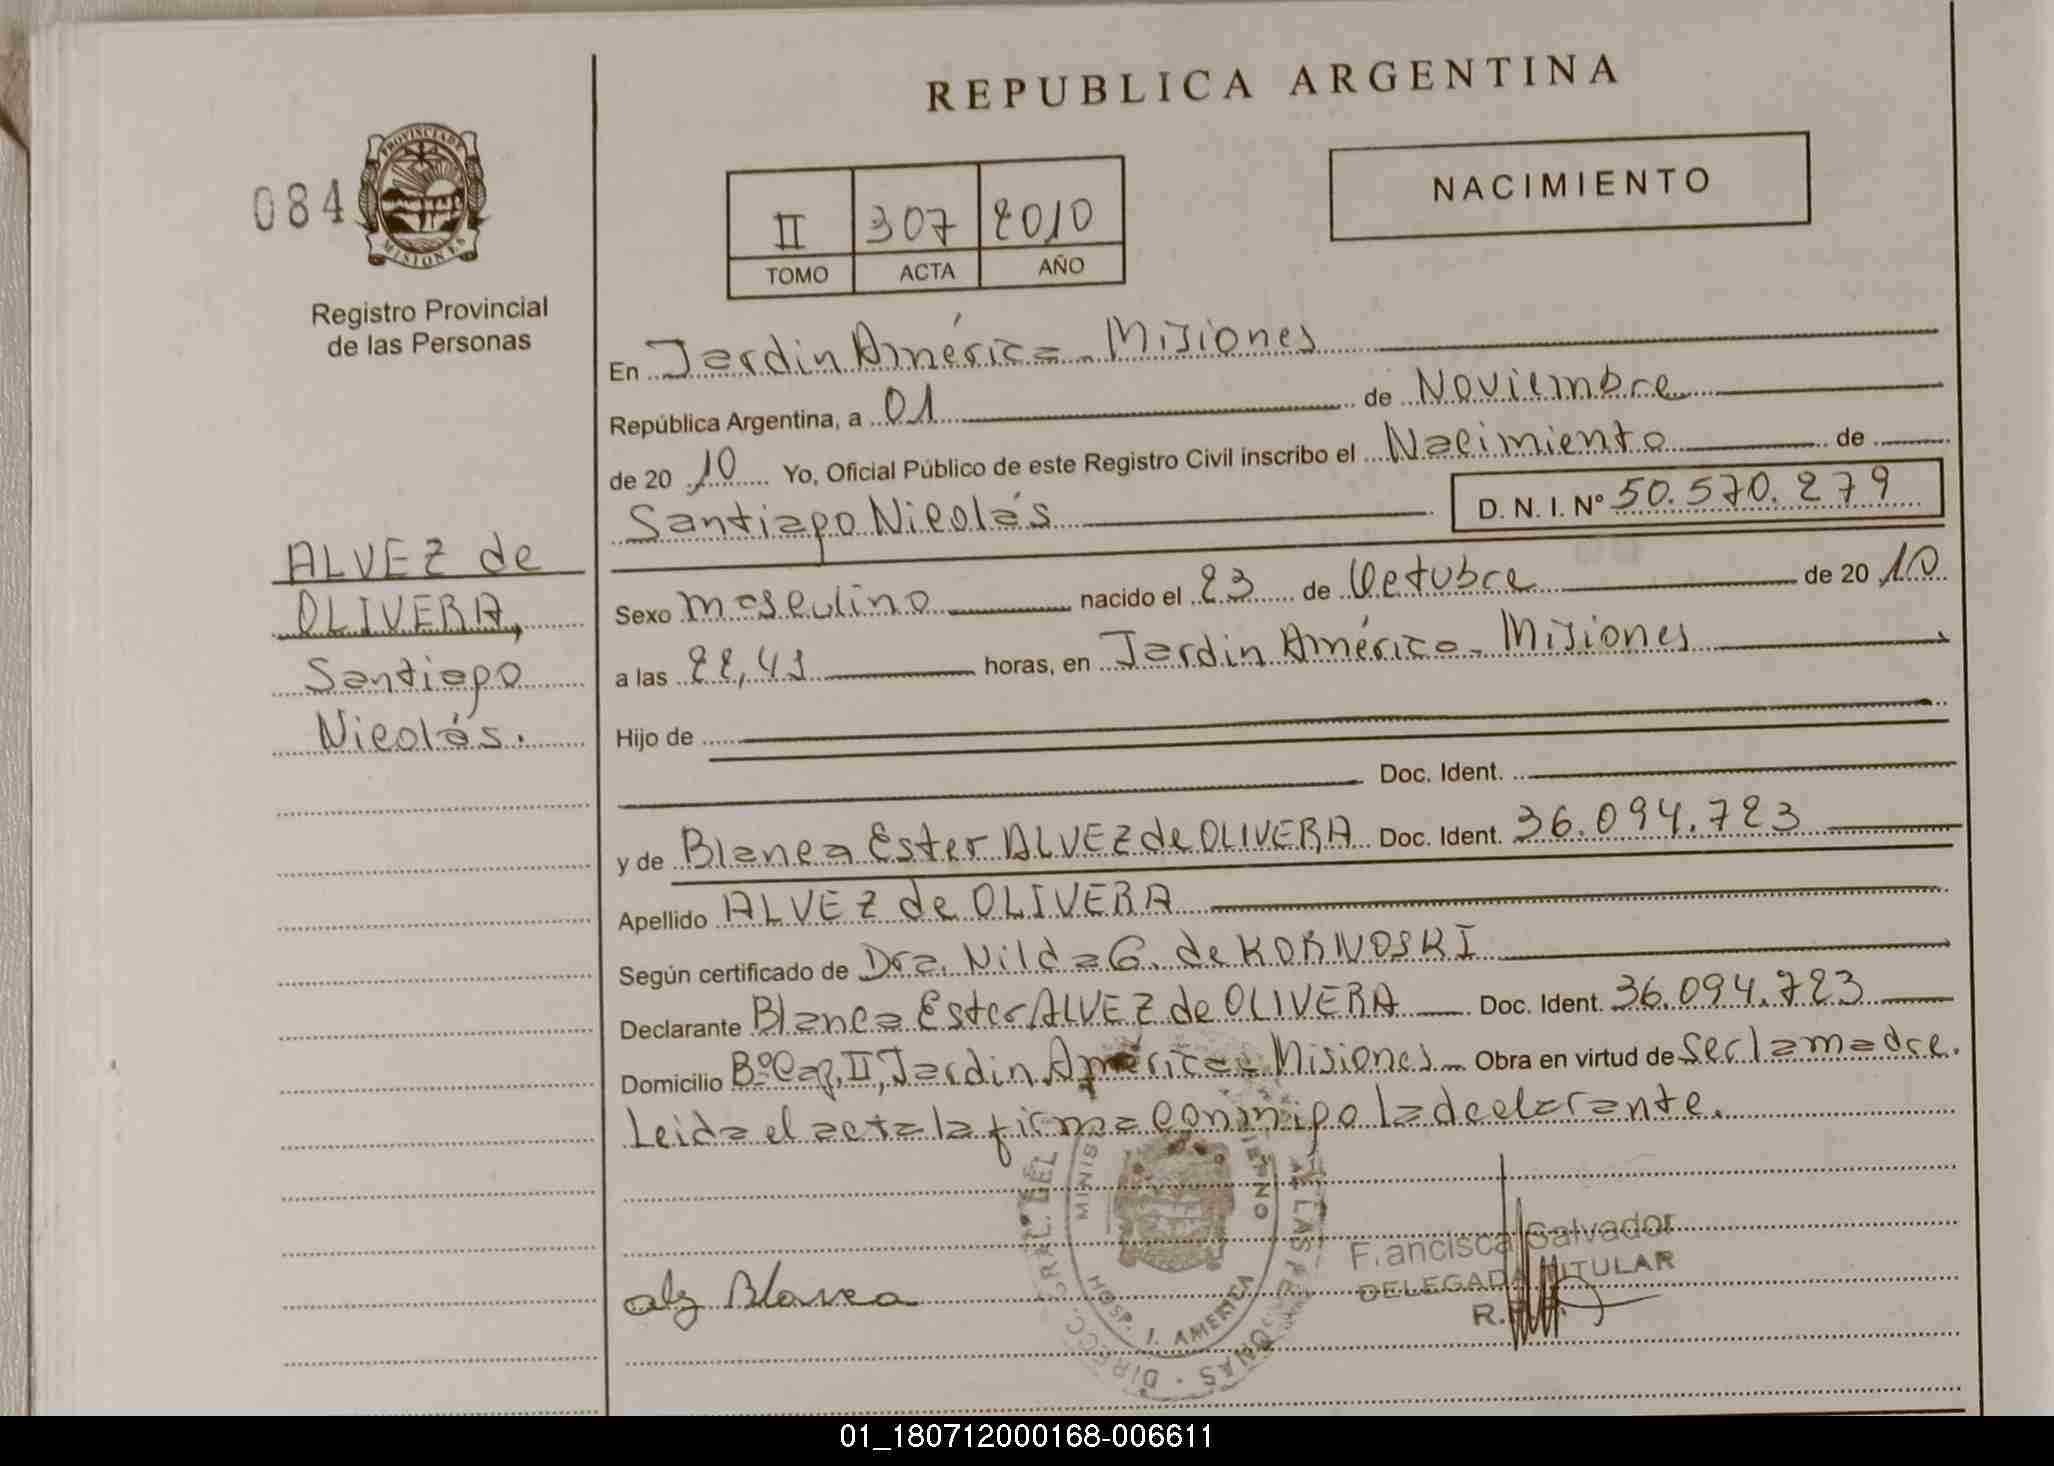 REPUBLICA ARGENTINA
084
PROVINCIA DE
MISIONES
Registro Provincial
de las Personas
II 307 2010
TOMO ACTA AÑO
NACIMIENTO
En Jardin América - Misiones
República Argentina, a 01 de Noviembre
de 20 10 Yo, Oficial Público de este Registro Civil inscribo el Nacimiento de
Santiago Nicolás D. N. I. Nº 50.570.279
ALVEZ de
OLIVERA,
Santiago
Nicolás.
Sexo masculino nacido el 23 de Octubre de 20 10
a las 22,41 horas, en Jardin América - Misiones
Hijo de
Doc. Ident.
y de Blanca Ester ALVEZ de OLIVERA Doc. Ident. 36.094.723
Apellido ALVEZ de OLIVERA
Según certificado de Dra. Nilda G. de KORNOSKI
Declarante Blanca Ester ALVEZ de OLIVERA Doc. Ident. 36.094.723
Domicilio Bº Cap. II, Jardin América - Misiones Obra en virtud de ser la madre.
Leida el acta la firma conmigo la declarante.
DIRECC. GRAL. DEL LAS PERSONAS
MINIS
HOSP. J. AMERICA
Francisca Salvador
DELEGADA TITULAR
alz Blanca
01_180712000168-006611